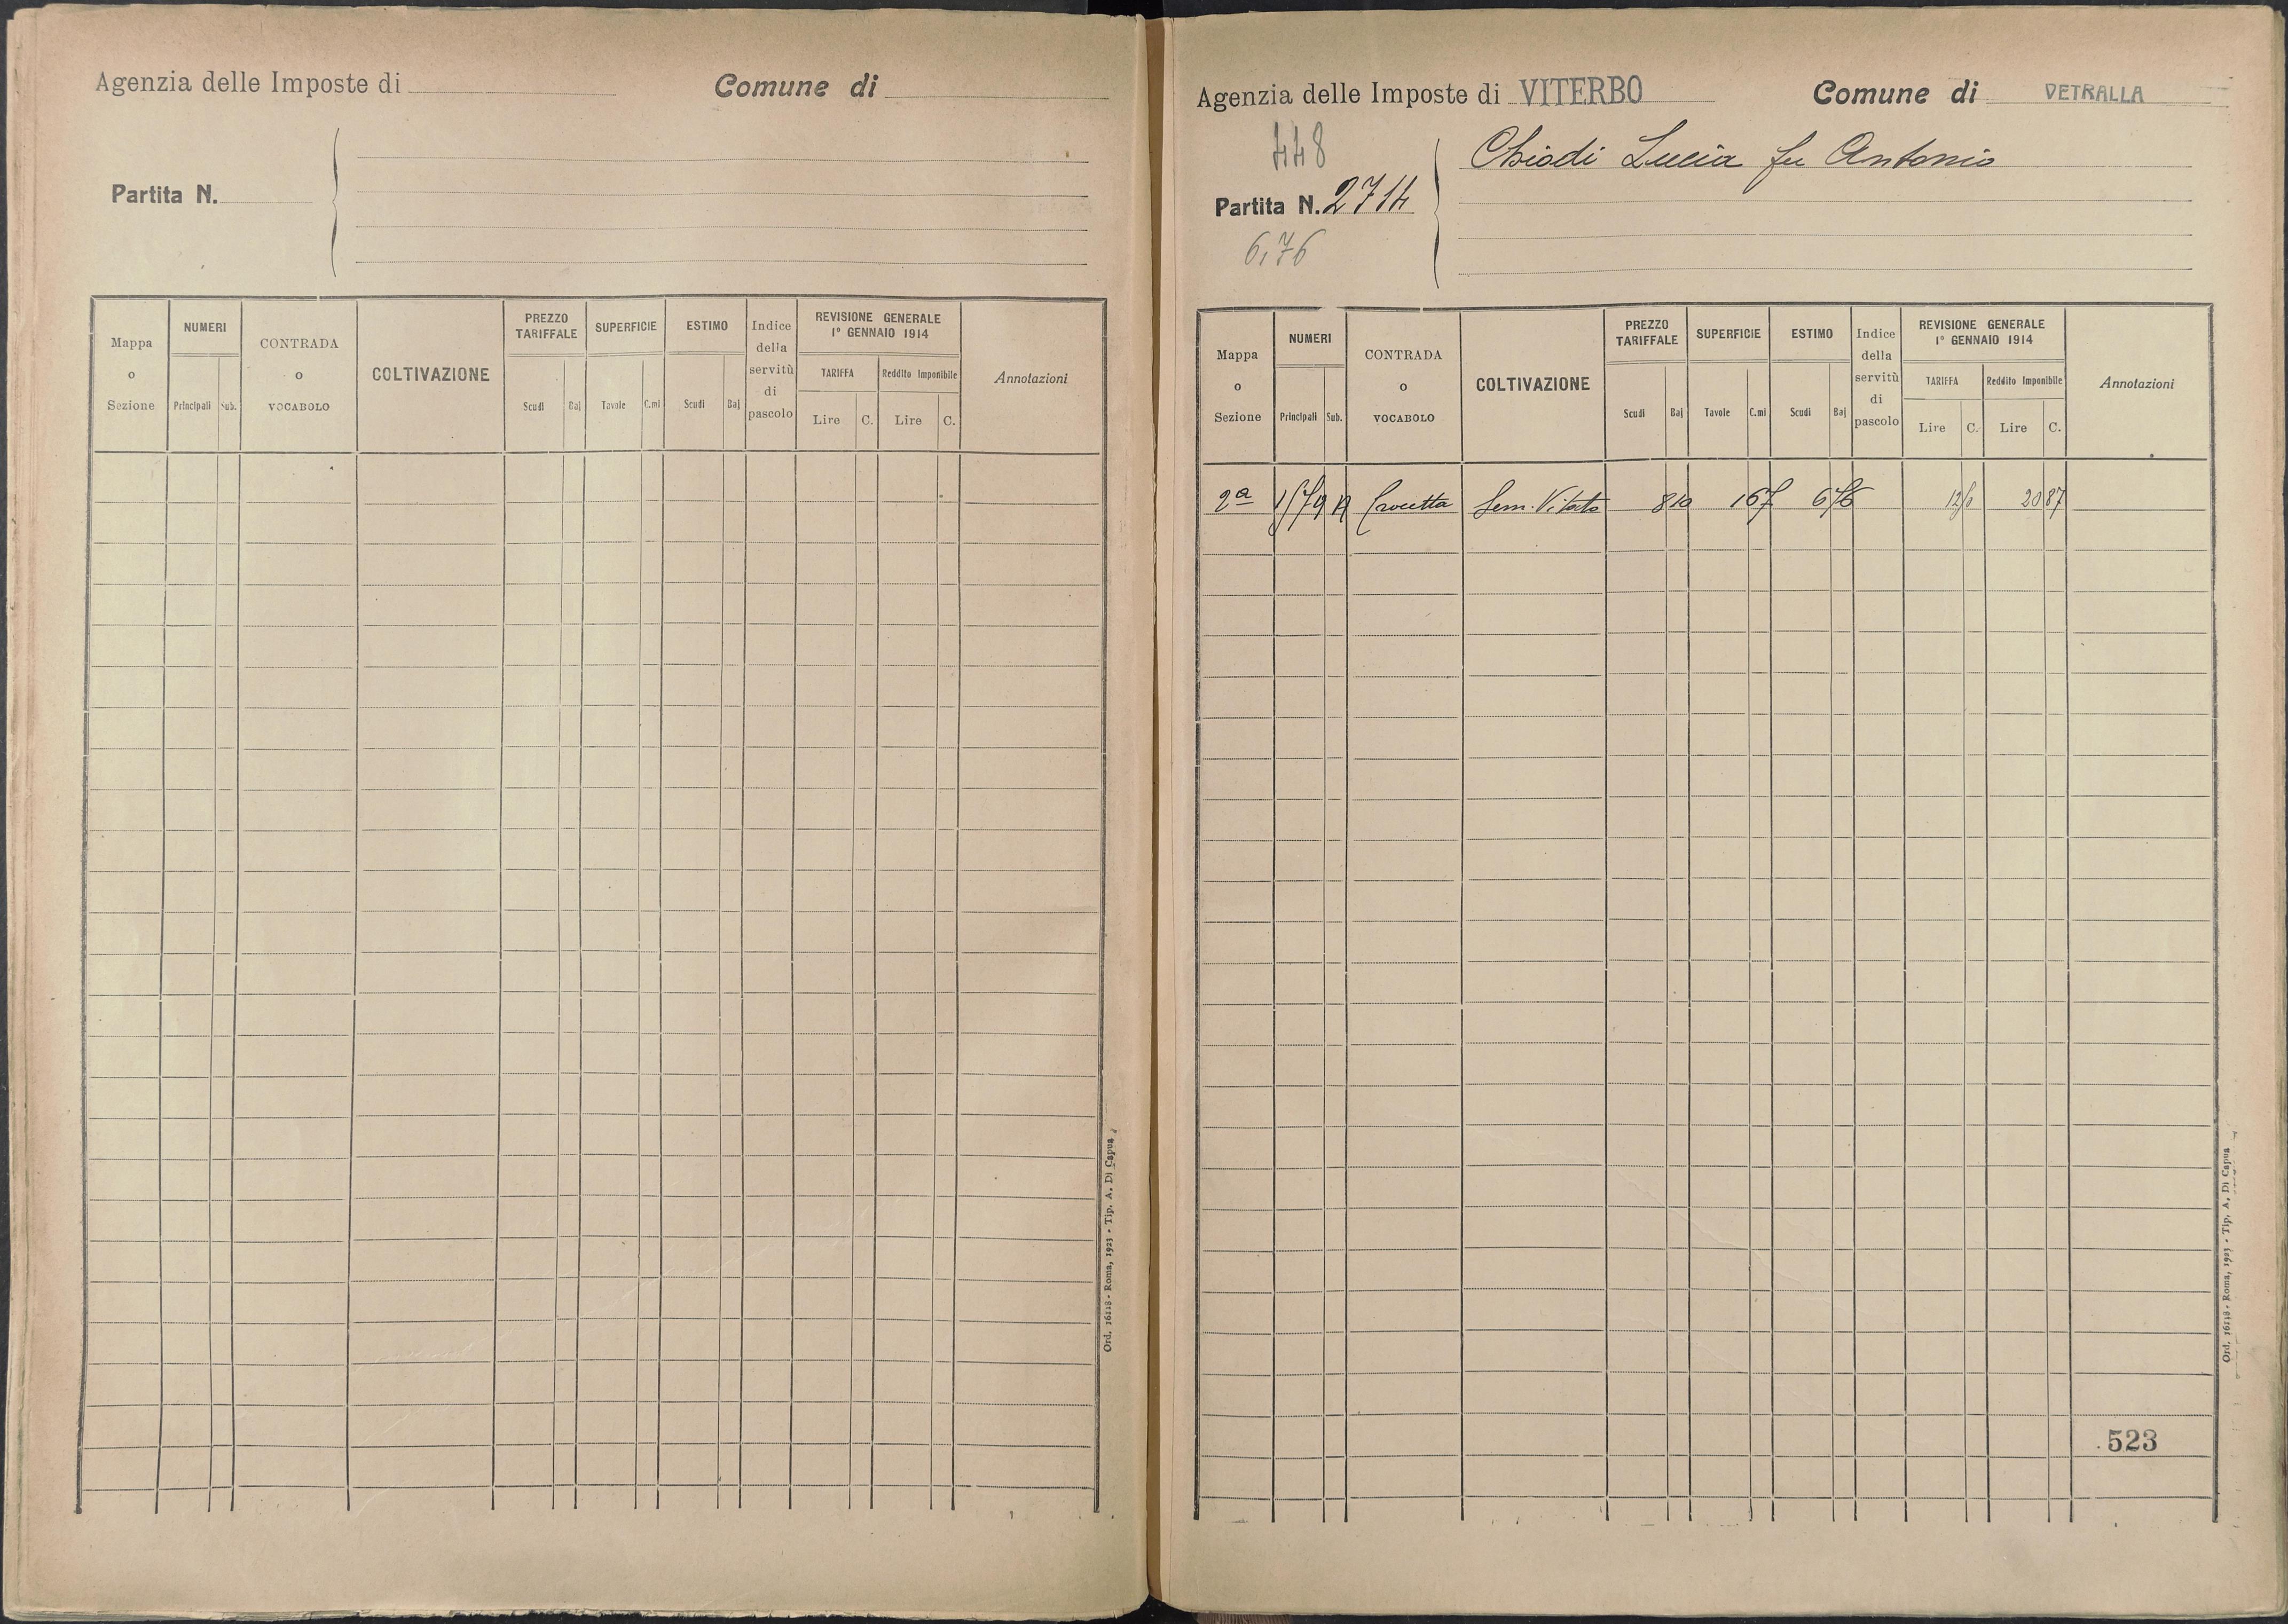 Agenzia delle Imposte di
Comune di
Partita N.
Mappa o Sezione
NUMERI
Principali
Sub.
CONTRADA o VOCABOLO
COLTIVAZIONE
PREZZO TARIFFALE
Scudi
Baj
SUPERFICIE
Tavole
C.mi
ESTIMO
Scudi
Baj
Indice della servitù di pascolo
REVISIONE GENERALE
1° GENNAIO 1914
TARIFFA
Reddito Imponibile
Lire
C.
Lire
C.
Annotazioni
Ord. 16118 - Roma, 1923 - Tip. A. Di Capua
Agenzia delle Imposte di VITERBO
Comune di VETRALLA
448
Chiodi Lucia fu Antonio
Partita N. 2714
6,76
Mappa o Sezione
NUMERI
Principali
Sub.
CONTRADA o VOCABOLO
COLTIVAZIONE
PREZZO TARIFFALE
Scudi
Baj
SUPERFICIE
Tavole
C.mi
ESTIMO
Scudi
Baj
Indice della servitù di pascolo
REVISIONE GENERALE
1° GENNAIO 1914
TARIFFA
Reddito Imponibile
Lire
C.
Lire
C.
Annotazioni
2a Crocetta Sem. Vitato 8 10 1 67 6 76 20 87
523
Ord. 16118 - Roma, 1923 - Tip. A. Di Capua